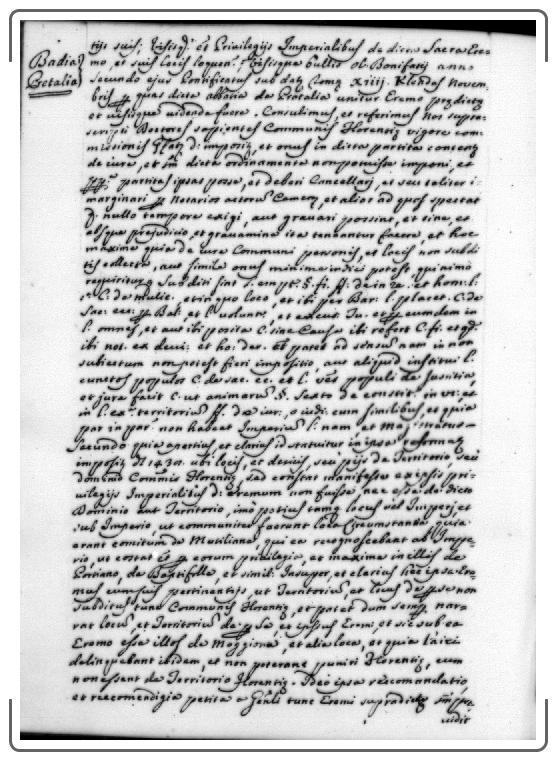 Badia
Protalia
tijs suis; Visisq; et Privilegijs Imperialibus de dicta Sacra Ere=
mo, et suis locis loquen: Visisque bullis ol. Bonifatij anno
secundo ejus Pontificatus sub dat: Romę XIIIJ. Klendas Novem
bris quas dicta abbatia de Protalia unitur Eremo prędictę
et visisque videndis fuere. Consulimus, et referimus Nos supra=
scripti Doctores sapientes Communis Florentię vigore com=
missionis d: imposiț, et onus in dicta partita
de iure, et dicta ordinamenta non potuisse imponi, et
partitas ipsas posse, et deberi Cancellarij, et seu taliter i=
marginari Notarios actorum Camerę, et alios ad quos spectat
nullo tempore exigi, aut gravari possint, et sine, et
absque prejudicio, et gravamine ita teneantur facere, et hoc
maxime quia de iure Communi personis, et locis non subdi
tis collecta, aut simile onus minime indici potest, quinimo
requiritur Subditi sint l. et hom: l:
C. de mulie. et in quo loco, et ibi per Bar: l. placet. C. de
Sac: ecc: Bal: et l. volunt, et eundem in
l. omnes, et aut ibi posita C. sine Causa ibi refert C. fi: et
ibi not: ex decis: et patet ad sensum nam in non
subiectum non potest fieri impositio, aut aliquid institui l.
cunctos populos C. de sac. ec. et l. populi de Justitia,
et jure facit C. ut animarum §. Sexto de constit: in VI: et
in l. ex: territorium ff. de iur: o iudi: cum similibus, et quia
par in par non habeat Imperium l: nam et Magistratus=
Secundo quia apertius, et clarius id statuitur in ipsa reformaę
imposiț 1430. ubi locis, et dicitis, seu pijs de Territorio, seu
dominio Commis Florentię, sed constat manifeste ex ipsis pri=
vilegijs Imperialibus d: Eremum non fuisse, nec esse de dicto
Dominio aut Territorio, imo potius tamq locus Imperij et
sub Imperio, ut communiter fuerunt loca Circumstantia quia
erant comitum de Mutiliana, qui ea recognoscebant ab Impe=
rio, ut costat eorum privilegia, et maxime in illis de
Porciano, de Battifolle, et simil: Insuper, et clarius licet ipse Ere=
mus cum suis pertinentijs, ut Territorium, et locus de se non
subditus tunc Communis Florentię, et patet dum semp nar=
rat locus, et Territorium de Se, et ipsius Eremi, et sic sub ea
Eremo esse illos de Moggiona, et alia loca, et quia laici
delinquebant ibidem, et non poterant puniri Florentię, cum
non essent de Territorio Florentię. Ideo ipsa recomandatio,
et reccomendigia petita a Gnli tunc Eremi supradictę
vidit